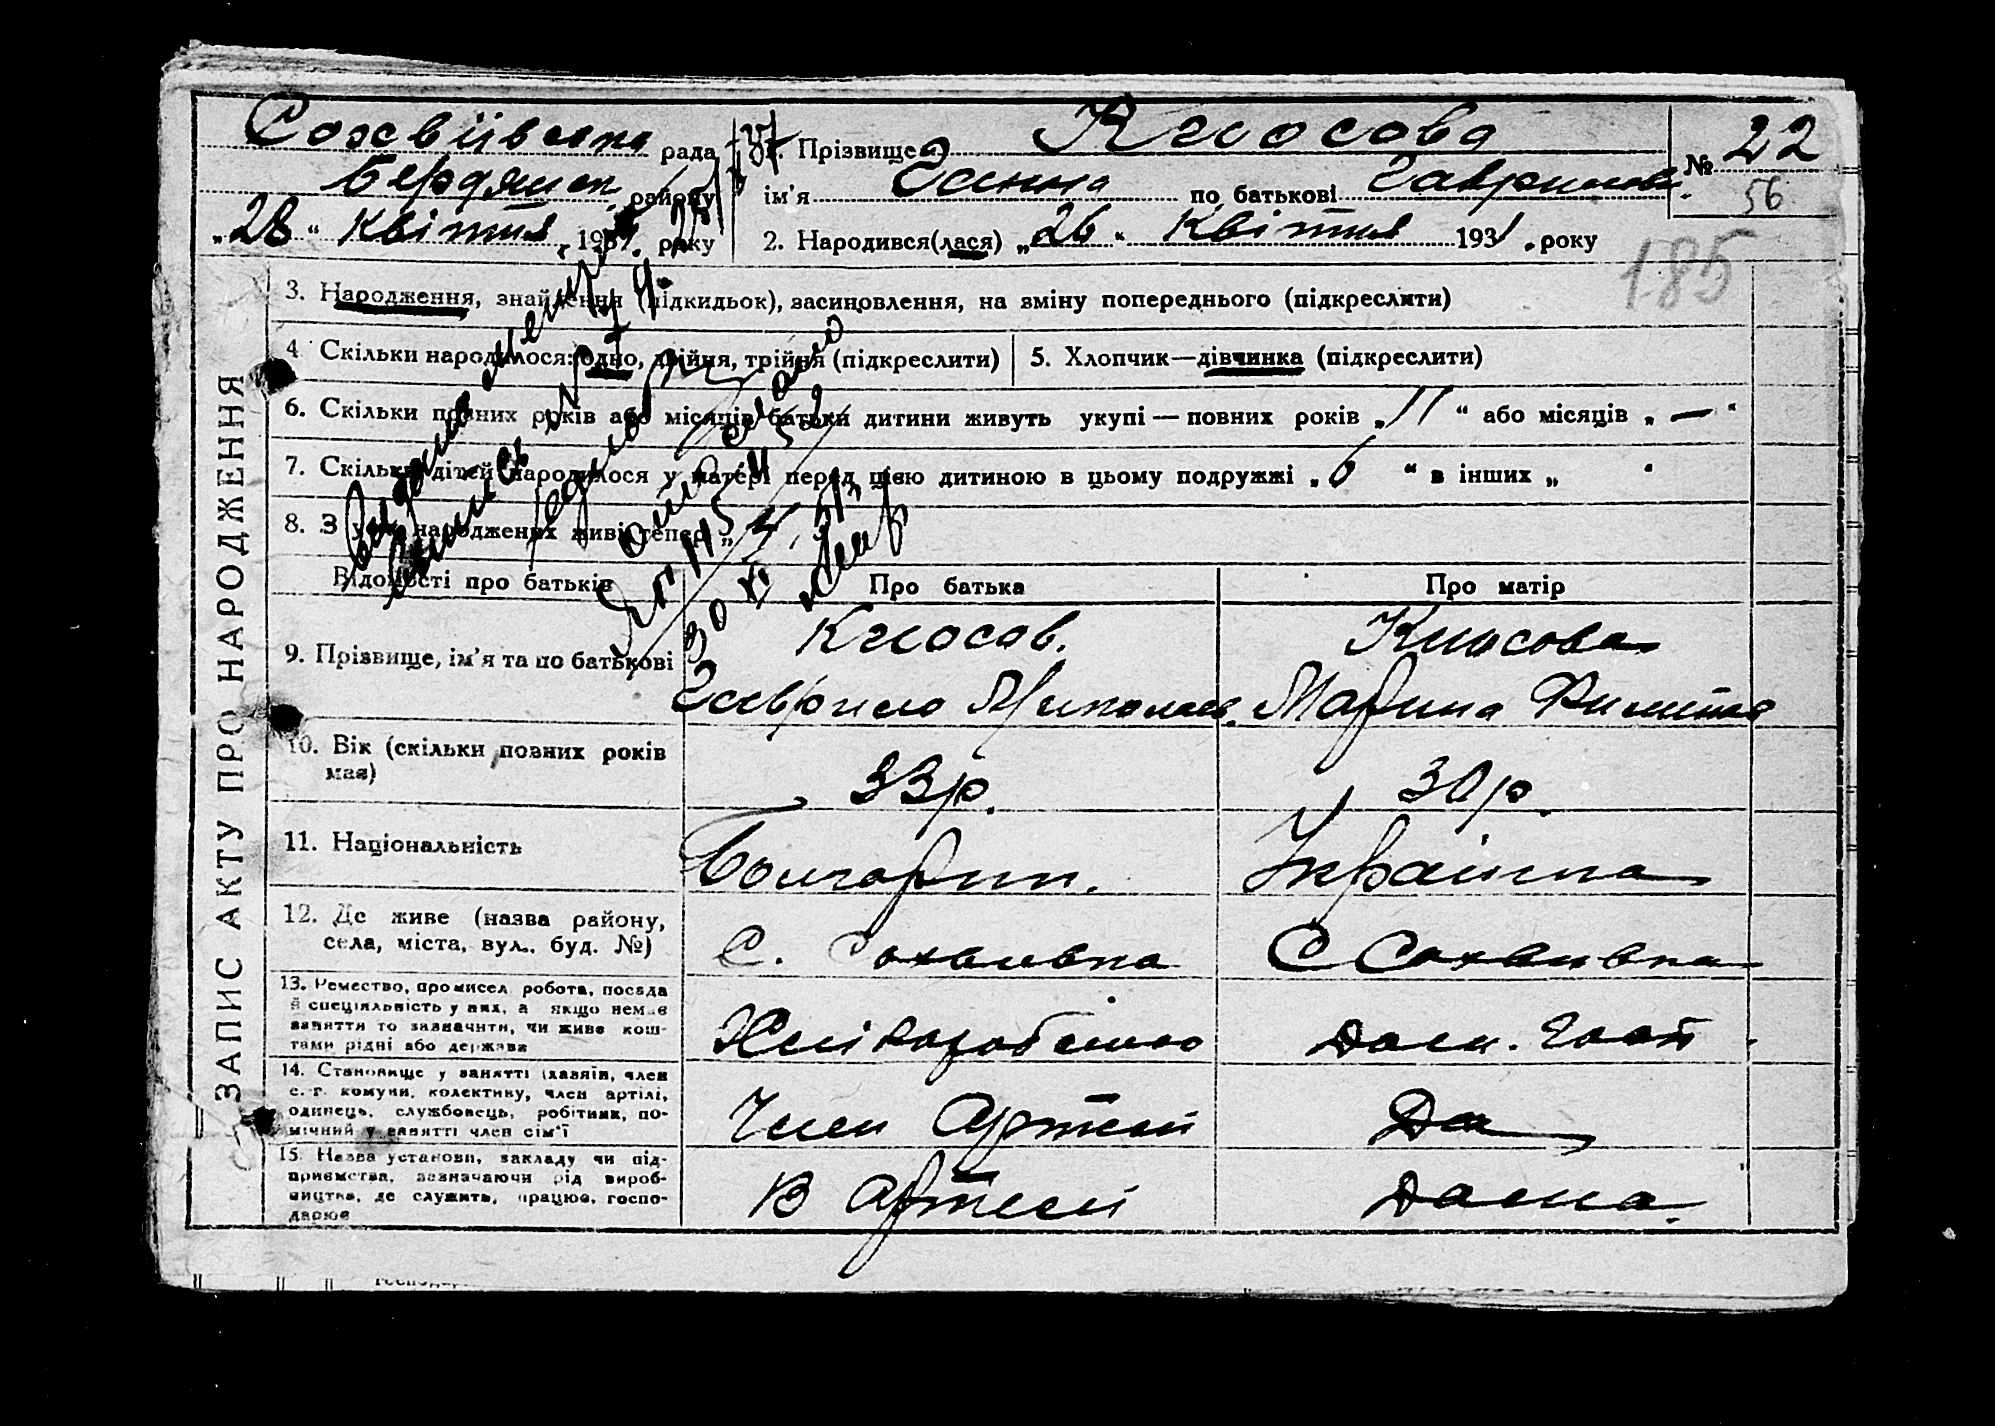 рада
1. Прізвище Кюосова № 22
Бердянськ. району ім'я Ганна по батькові Гаврилов. 56
„28“ Квітня 1931. року 2. Народився(лася) „26“ Квітня 1931. року
185
ЗАПИС АКТУ ПРО НАРОДЖЕННЯ
3. Народження, знайдення (підкидьок), засиновлення, на зміну попереднього (підкреслити)
4 Скільки народилося: одно, двійня, трійня (підкреслити) 5. Хлопчик—дівчинка (підкреслити)
6. Скільки повних років або місяців батьки дитини живуть укупі — повних років „11“ або місяців „—“
7. Скільки дітей народилося у матері перед цією дитиною в цьому подружжі „6“ в інших „ “
8. З у народжених живі тепер „
Відомості про батьків Про батька Про матір
9. Прізвище, ім'я та по батькові Кюосов. Кюосова
Гаврило Миколаєв. Марина
10. Вік (скільки повних років має) 33 р. 30 р.
11. Національність Болгарин. Українка
12. Де живе (назва району, села, міста, вул., буд. №) С. С
13. Ремество, промисел, робота, посада й спеціяльність у них, а якщо немає заняття то зазначити, чи живе коштами рідні або держава Хліборобство Дом. Госп.
14. Становище у занятті (хазяїн, член с.-г. комуни, колективу, член артілі, одинець, службовець, робітник, помічний у занятті член сім'ї Член Артелі До
15. Назва установи, закладу чи підприємства, зазначаючи рід виробництва, де служить, працює, господарює В Артелі Дома.